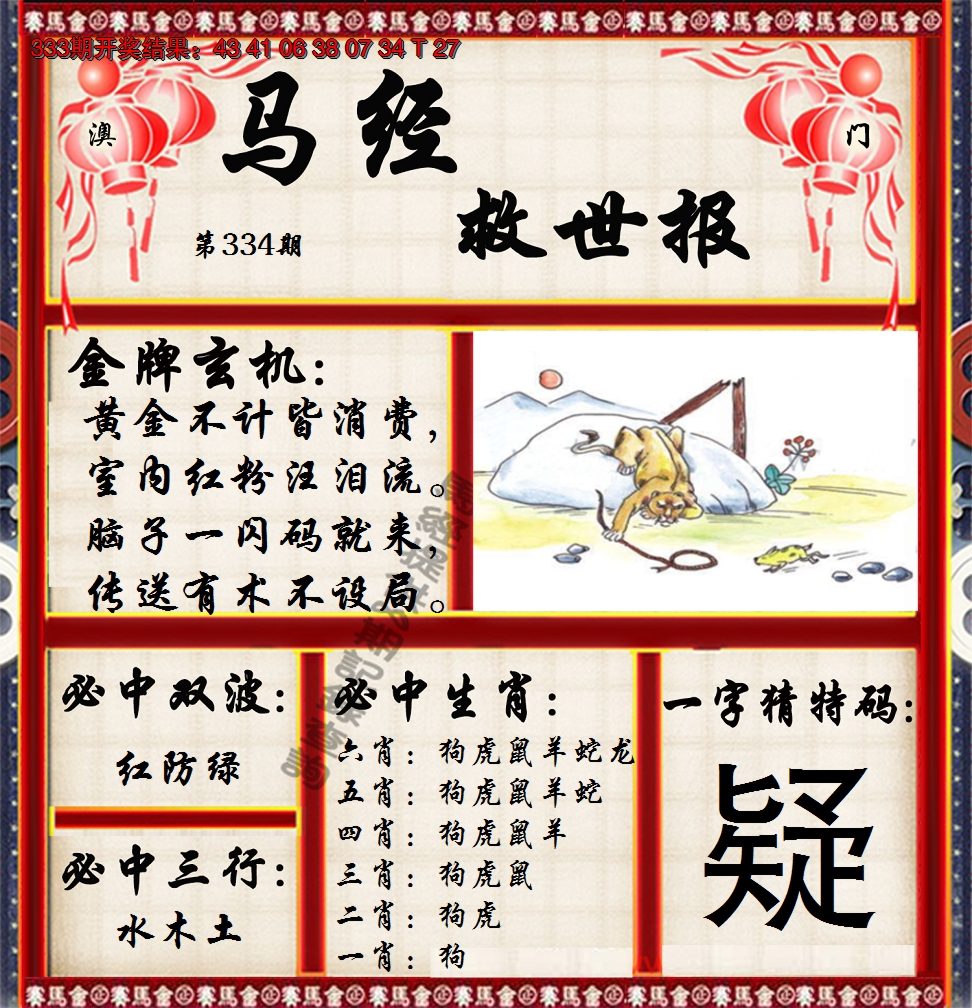 賽馬會㊣賽馬會㊣賽馬會㊣賽馬會㊣賽馬會㊣賽馬會㊣
333期开奖结果：43 41 06 38 07 34 T 27
澳 门
马经
救世报
第334期
金牌玄机：
黄金不计皆消费，
室内红粉汪泪流。
脑子一闪码就来，
传送有术不设局。
必中双波：
红防绿
必中三行：
水木土
必中生肖：
六肖：狗虎鼠羊蛇龙
五肖：狗虎鼠羊蛇
四肖：狗虎鼠羊
三肖：狗虎鼠
二肖：狗虎
一肖：狗
一字猜特码：
疑